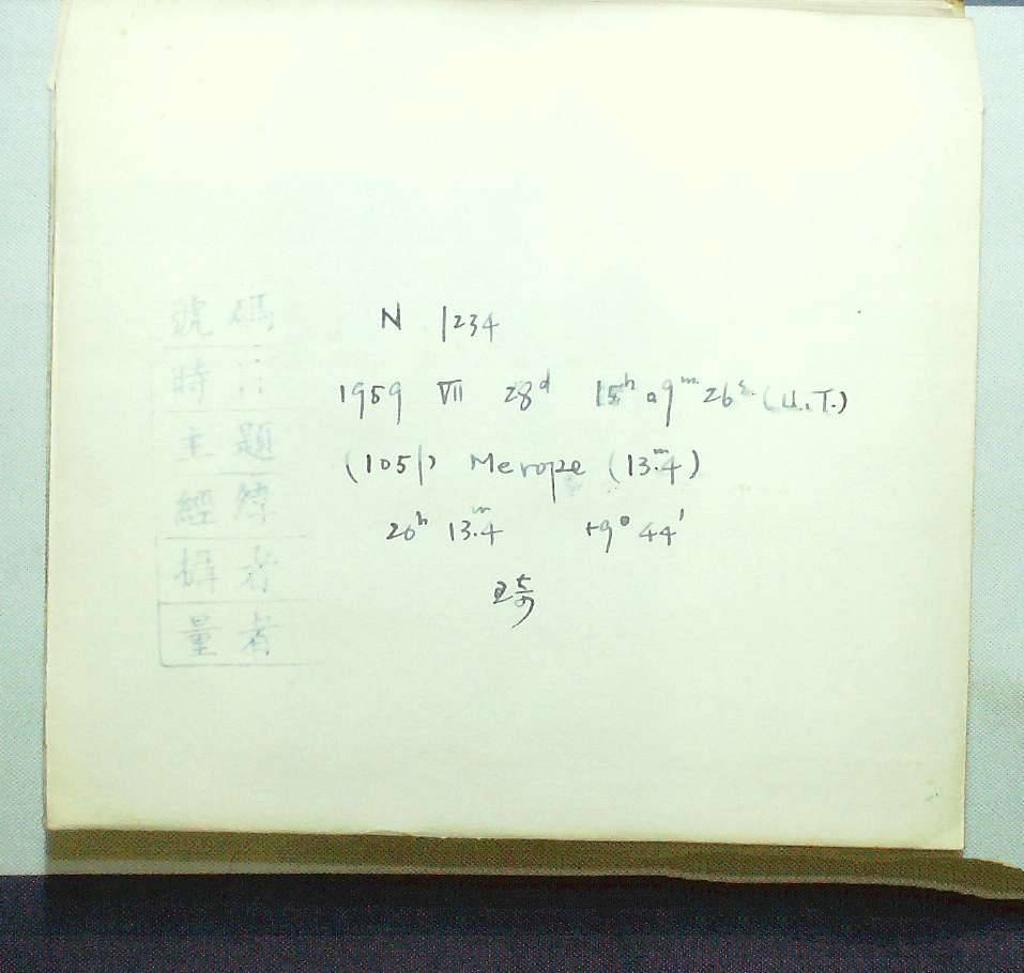 號碼 N 1234
時 1959 VII 28ᵈ 15ʰ 09ᵐ 26ˢ (U.T.)
主題 (1051) Merope (13ᵐ.4)
經緯 20ʰ 13ᵐ.4 +9° 44'
攝者
量者